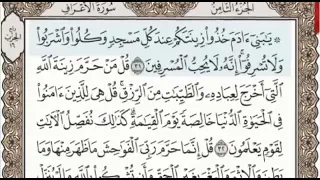 الجزء الثامن
سورة الأعراف
۞ يَٰبَنِىٓ ءَادَمَ خُذُوا۟ زِينَتَكُمْ عِندَ كُلِّ مَسْجِدٍ وَكُلُوا۟ وَٱشْرَبُوا۟
وَلَا تُسْرِفُوٓا۟ إِنَّهُۥ لَا يُحِبُّ ٱلْمُسْرِفِينَ ٣١ قُلْ مَنْ حَرَّمَ زِينَةَ ٱللَّهِ
ٱلَّتِىٓ أَخْرَجَ لِعِبَادِهِۦ وَٱلطَّيِّبَٰتِ مِنَ ٱلرِّزْقِ قُلْ هِىَ لِلَّذِينَ ءَامَنُوا۟
فِى ٱلْحَيَوٰةِ ٱلدُّنْيَا خَالِصَةً يَوْمَ ٱلْقِيَٰمَةِ كَذَٰلِكَ نُفَصِّلُ ٱلْءَايَٰتِ
لِقَوْمٍ يَعْلَمُونَ ٣٢ قُلْ إِنَّمَا حَرَّمَ رَبِّىَ ٱلْفَوَٰحِشَ مَا ظَهَرَ مِنْهَا وَمَا